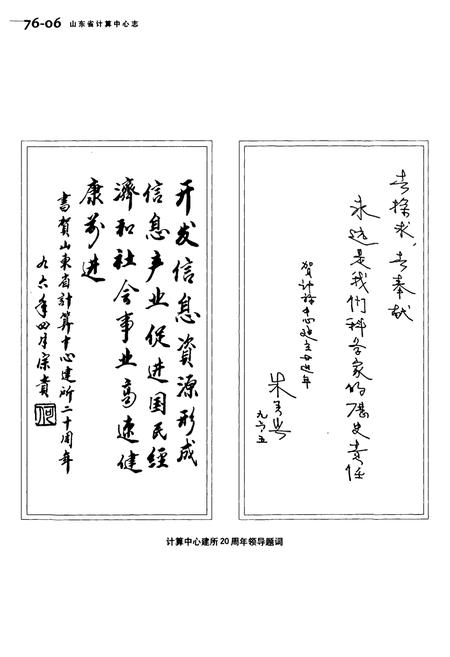 76-06 山东省计算中心志
开发信息资源形成
信息产业促进国民经
濟和社会事业高速健
康前进
書賀山東省計算中心建所二十周年
九六年四月宗貴
去探求,去奉献
永远是我们科学家的历史责任
贺计算中心建立廿周年
朱
九六、五
计算中心建所20周年领导题词